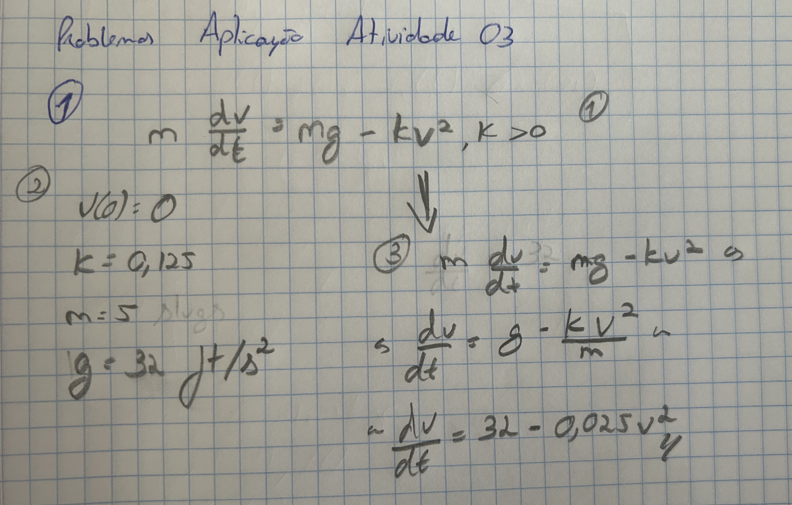 Problemas Aplicação Atividade 03
① m dv/dt = mg - kv², K > 0 ①
② v(0) = 0
K = 0,125
m = 5 slugs
g = 32 ft/s²
③ m dv/dt = mg - kv² ⇔
⇔ dv/dt = g - kv²/m ~
~ dv/dt = 32 - 0,025v² //